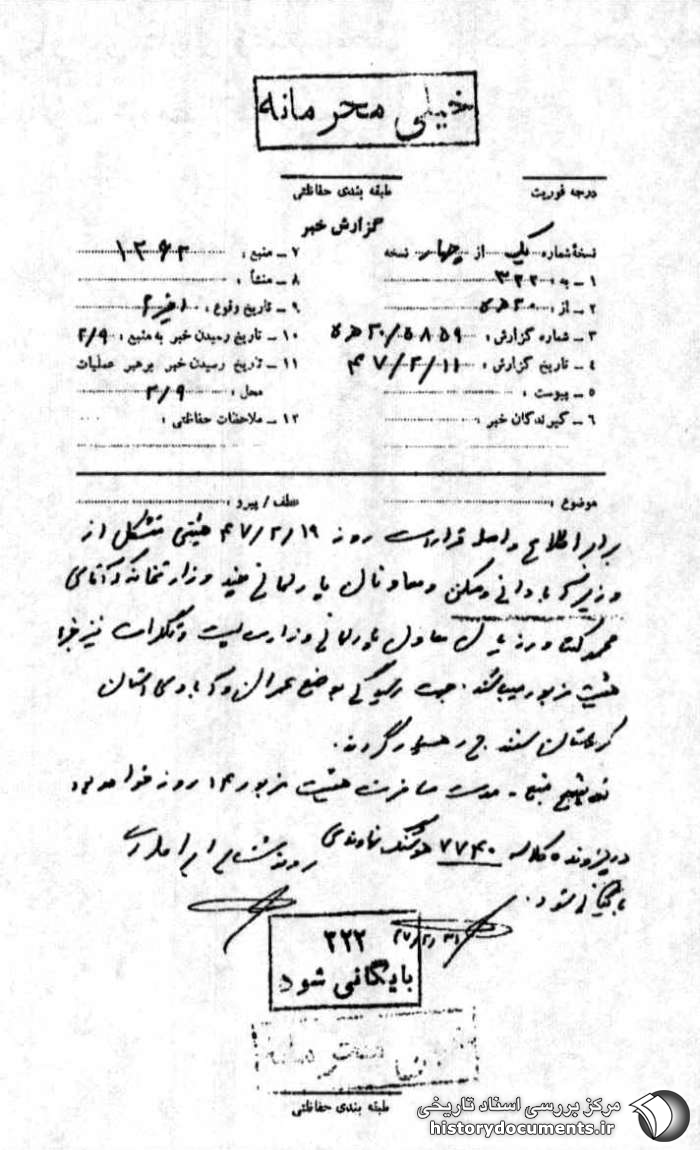 خیلی محرمانه
درجه فوریت
طبقه بندی حفاظتی
گزارش خبر
نسخه شماره یک از چهار نسخه
۱ - به : ۳۲۲
۲ - از : ۲۰ ه‍ ۵
۳ - شماره گزارش : ۲۰/۵۸۵۹ ه‍ ۵
۴ - تاریخ گزارش : ۴۷/۲/۱۱
۵ - پیوست :
۶ - گیرندگان خبر :
۷ - منبع : ۱۳۶۲
۸ - منشأ :
۹ - تاریخ وقوع : اخیرا
۱۰ - تاریخ رسیدن خبر به منبع : ۲/۹
۱۱ - تاریخ رسیدن خبر برهبر عملیات
محل : ۲/۹
۱۲ - ملاحظات حفاظتی :
موضوع :
عطف / پیرو :
برابر اطلاع واصله قرار است روز ۴۷/۲/۱۹ هیئتی متشکل از
وزیر آبادانی و مسکن و معاونان پارلمانی چند وزارتخانه که آقای
محمد کشاورزیان معاون پارلمانی وزارت پست و تلگراف نیز جزء
هیئت مزبور میباشد جهت رسیدگی به وضع عمران و آبادی استان
کردستان به سنندج رهسپار گردند.
توضیح منبع - مدت مسافرت هیئت مزبور ۱۴ روز خواهد بود
در پرونده کلاسه ۷۷۴۰ هوشنگ نهاوندی
بایگانی شود.
۴۷/۲/۳۱
۳۲۲
بایگانی شود
خیلی محرمانه
طبقه بندی حفاظتی
مرکز بررسی اسناد تاریخی
historydocuments.ir